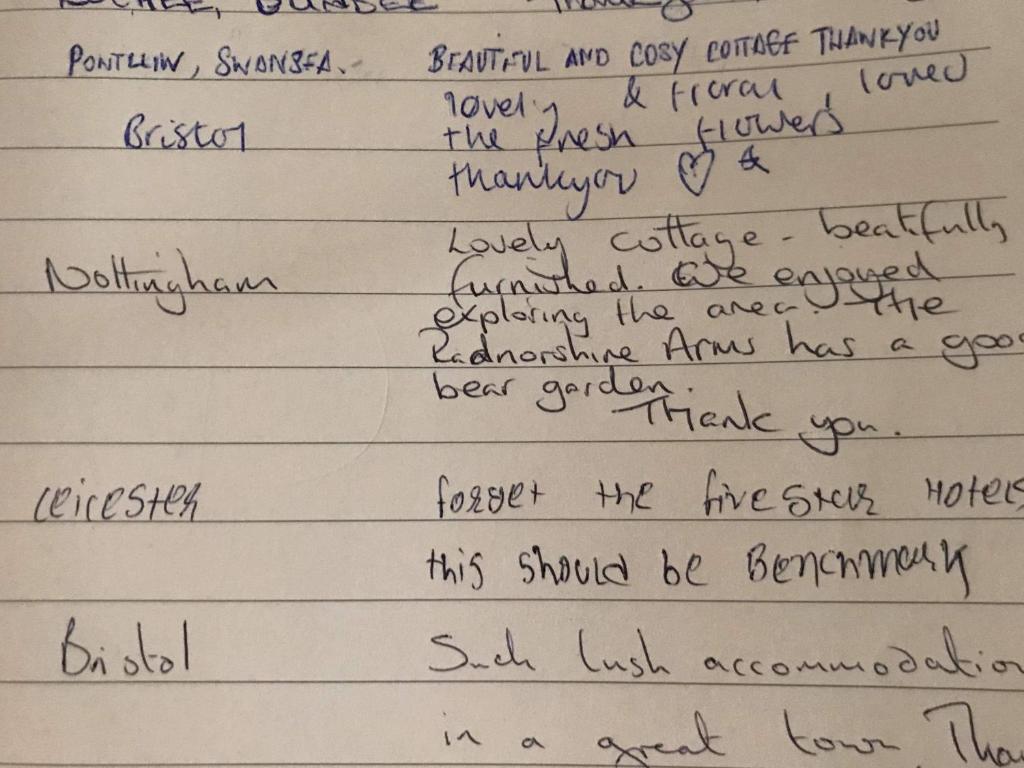 LOCHEE, DUNDEE
PONTLLIW, SWANSEA. BEAUTIFUL AND COSY COTTAGE THANKYOU
lovely & floral, loved
Bristol the fresh flowers
thankyou ♡ &
Lovely cottage - beatifully
Nottingham furnished. We enjoyed
exploring the area. The
Radnorshire Arms has a goo
bear garden.
Thank you.
Leicester forget the five Star HOTELS
this should be Benchmark
Bristol Such lush accommodation
in a great town Tha